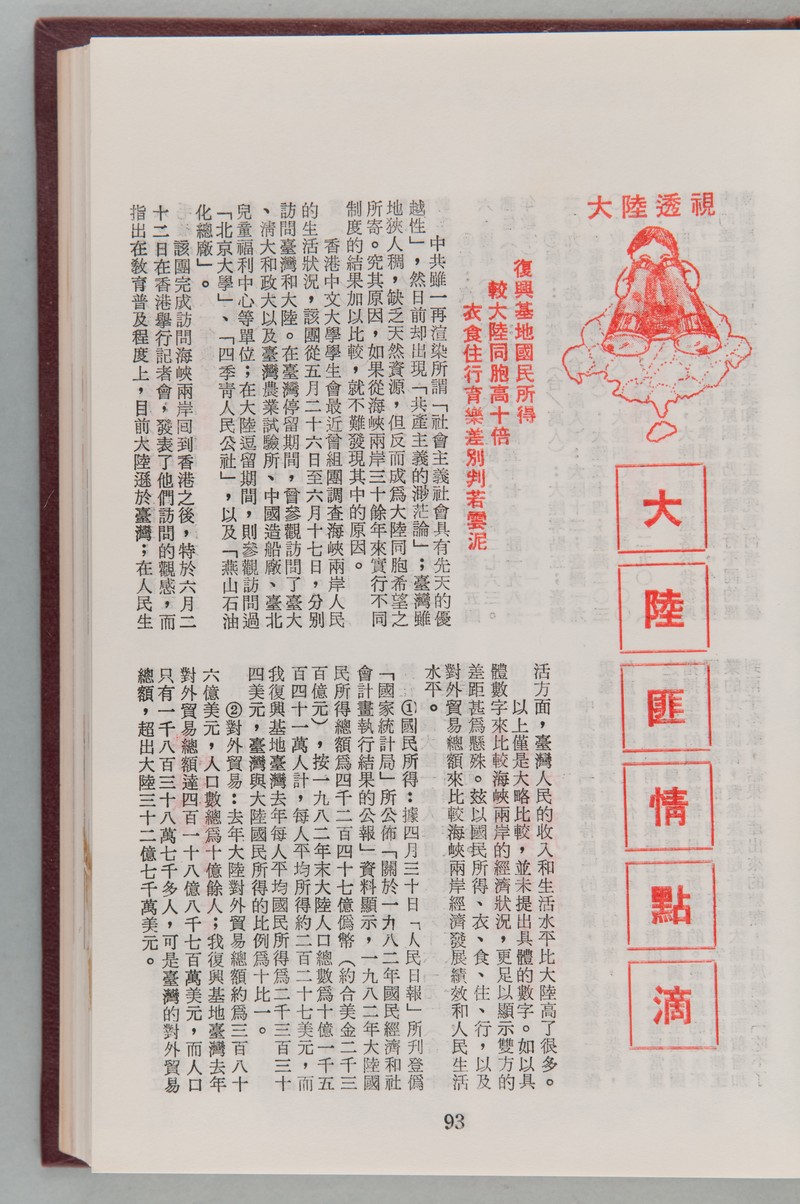 大陸透視
大陸匪情點滴
復興基地國民所得
較大陸同胞高十倍
衣食住行育樂差別判若雲泥
中共雖一再渲染所謂「社會主義社會具有先天的優
越性」，然日前却出現「共產主義的渺茫論」；臺灣雖
地狹人稠，缺乏天然資源，但反而成爲大陸同胞希望之
所寄。究其原因，如果從海峽兩岸三十餘年來實行不同
制度的結果加以比較，就不難發現其中的原因。
香港中文大學學生會最近曾組團調查海峽兩岸人民
的生活狀況，該團從五月二十六日至六月十七日，分別
訪問臺灣和大陸。在臺灣停留期間，曾參觀訪問了臺大
、清大和政大以及臺灣農業試驗所、中國造船廠、臺北
兒童福利中心等單位；在大陸逗留期間，則參觀訪問過
「北京大學」、「四季靑人民公社」，以及「燕山石油
化總廠」。
該團完成訪問海峽兩岸回到香港之後，特於六月二
十二日在香港舉行記者會，發表了他們訪問的觀感，而
指出在教育普及程度上，目前大陸遜於臺灣；在人民生
活方面，臺灣人民的收入和生活水平比大陸高了很多。
以上僅是大略比較，並未提出具體的數字。如以具
體數字來比較海峽兩岸的經濟狀況，更足以顯示雙方的
差距甚爲懸殊。玆以國民所得、衣、食、住、行，以及
對外貿易總額來比較海峽兩岸經濟發展績效和人民生活
水平。
①國民所得：據四月三十日「人民日報」所刋登僞
「國家統計局」所公佈「關於一九八二年國民經濟和社
會計畫執行結果的公報」資料顯示，一九八二年大陸國
民所得總額爲四千二百四十七億僞幣（約合美金二千三
百億元），按一九八二年末大陸人口總數爲十億一千五
百四十一萬人計，每人平均所得約二百二十七美元，而
我復興基地臺灣去年每人平均國民所得爲二千三百三十
四美元，臺灣與大陸國民所得的比例爲十比一。
②對外貿易：去年大陸對外貿易總額約爲三百八十
六億美元，人口數總爲十億餘人；我復興基地臺灣去年
對外貿易總額達四百一十八億八千七百萬美元，而人口
只有一千八百三十八萬七千多人，可是臺灣的對外貿易
總額，超出大陸三十二億七千萬美元。
93